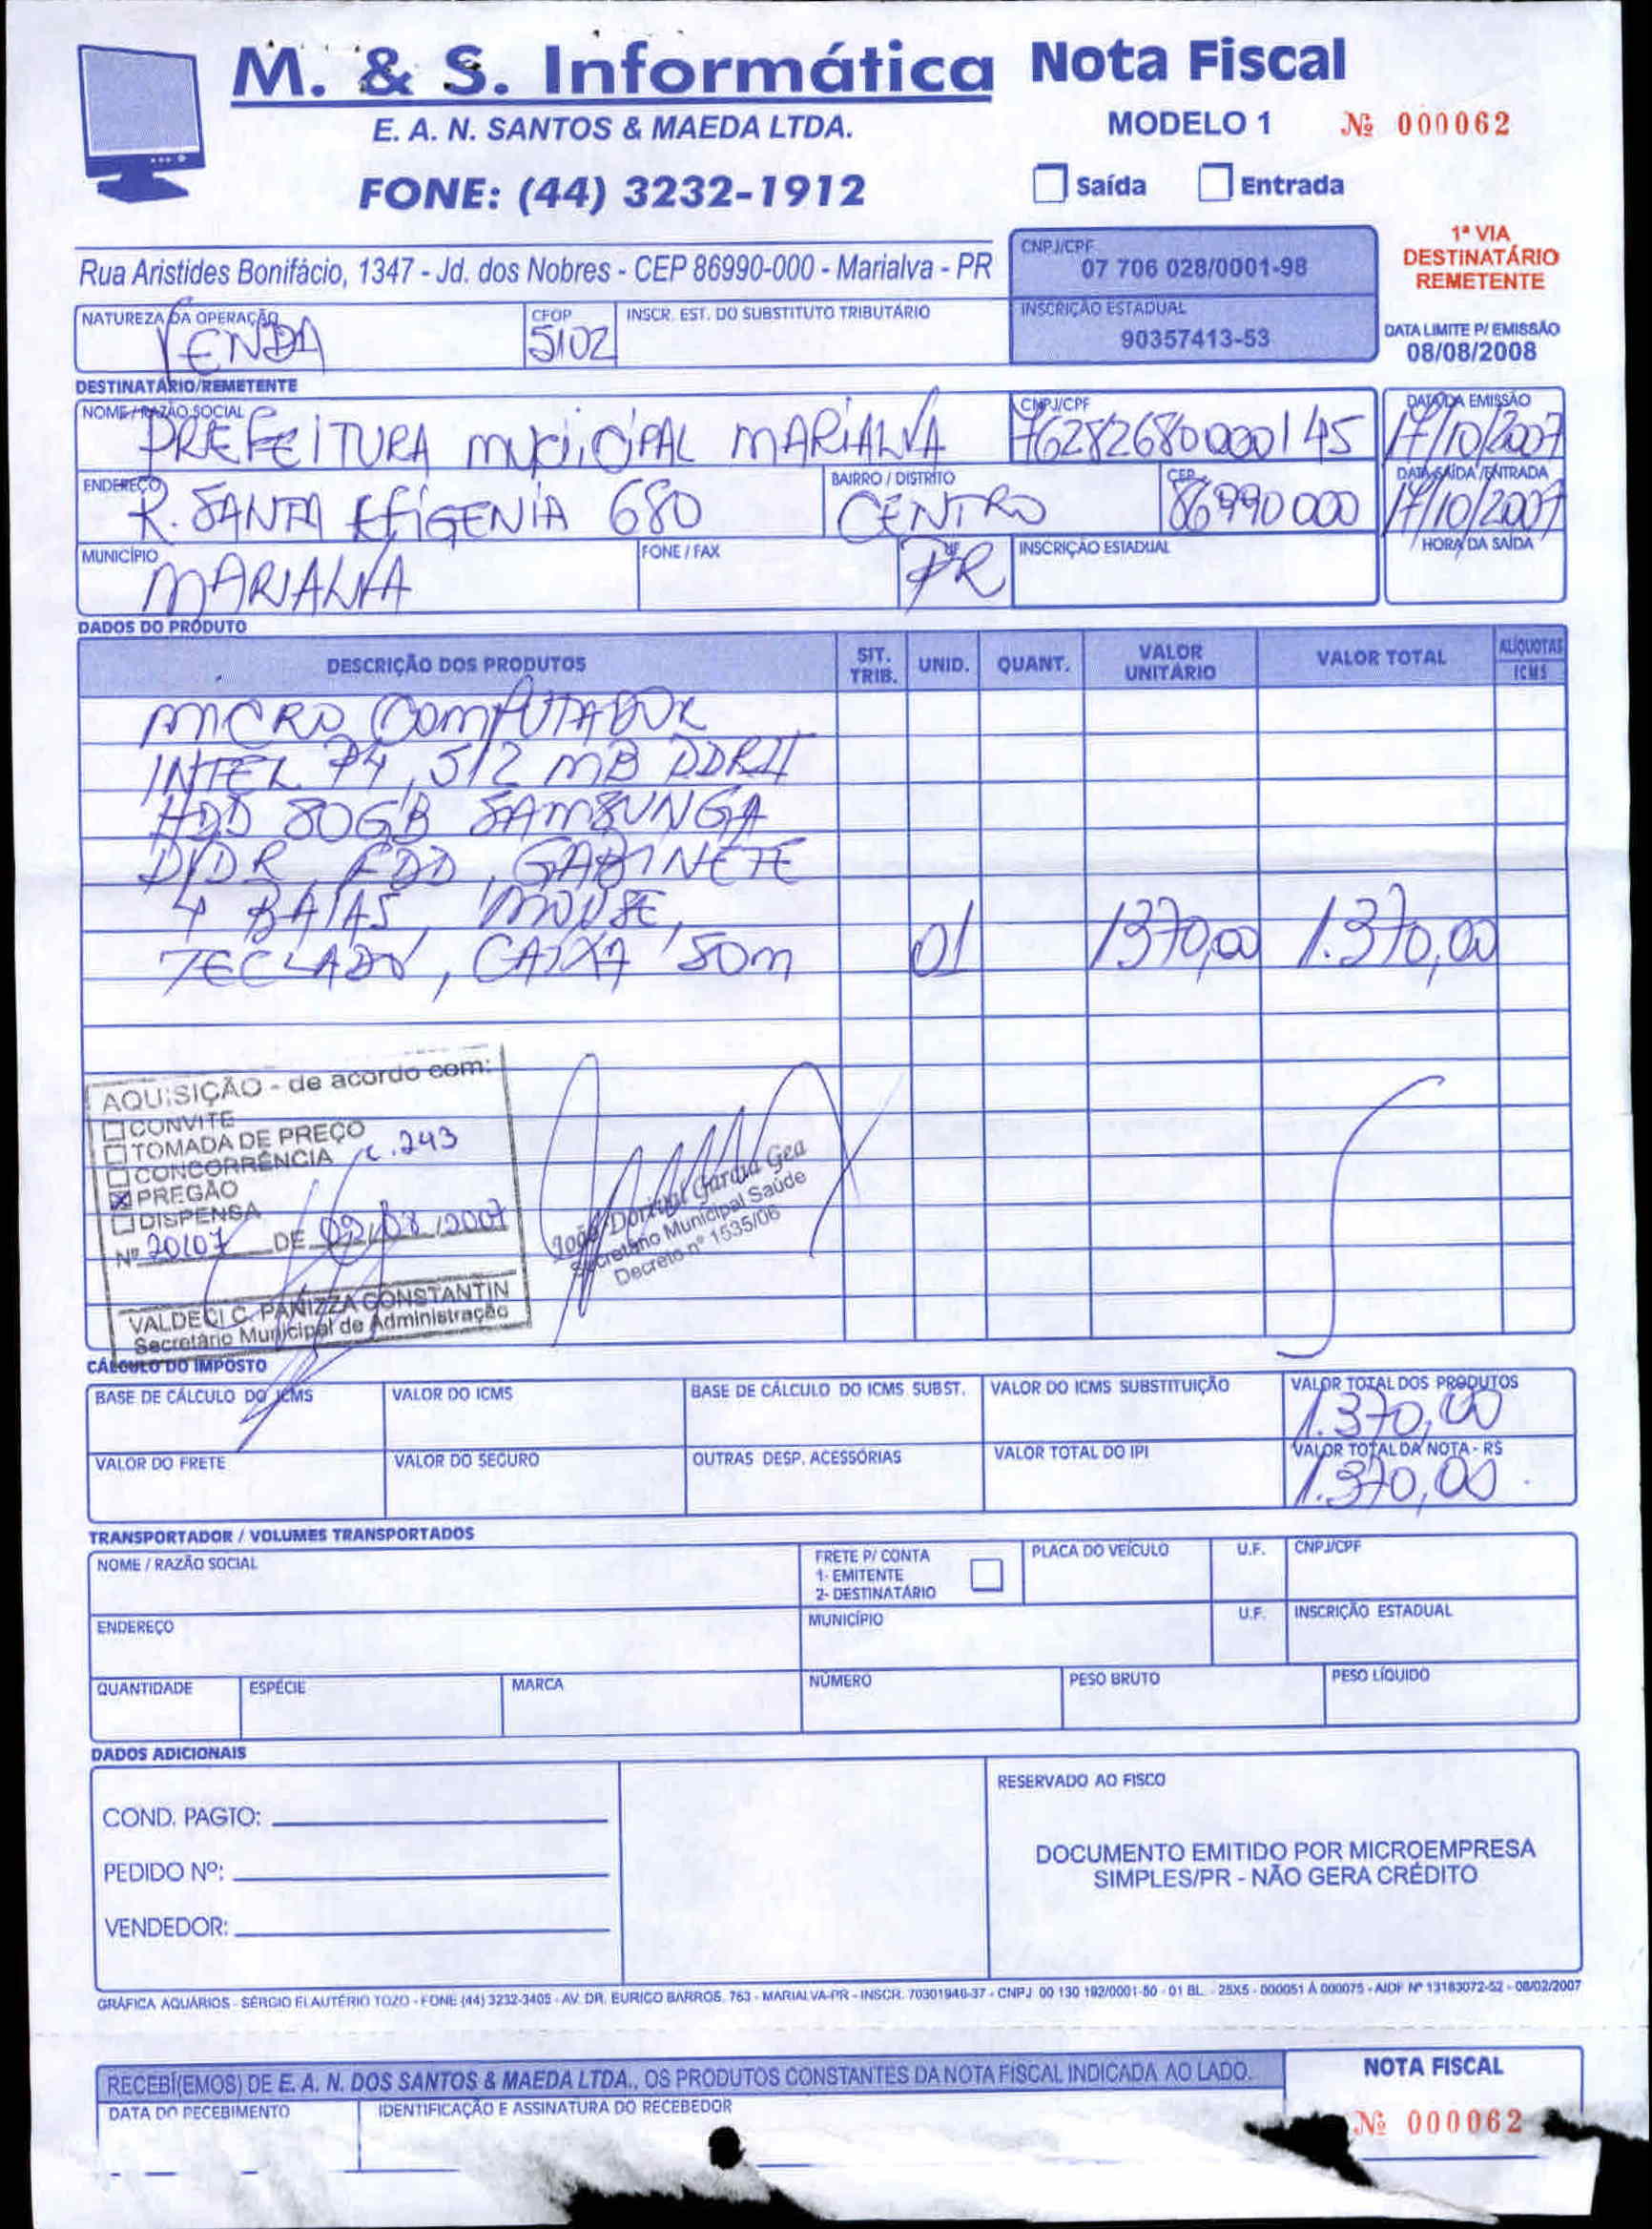 M. & S. Informática Nota Fiscal
E. A. N. SANTOS & MAEDA LTDA. MODELO 1 Nº 000062
FONE: (44) 3232-1912 Saída Entrada
1ª VIA
DESTINATÁRIO
REMETENTE
Rua Aristides Bonifácio, 1347 - Jd. dos Nobres - CEP 86990-000 - Marialva - PR
CNPJ/CPF
07 706 028/0001-98
INSCRIÇÃO ESTADUAL
90357413-53
DATA LIMITE P/ EMISSÃO
08/08/2008
NATUREZA DA OPERAÇÃO CFOP INSCR. EST. DO SUBSTITUTO TRIBUTÁRIO
VENDA 5102
DESTINATÁRIO/REMETENTE
NOME / RAZÃO SOCIAL CNPJ/CPF DATA DA EMISSÃO
PREFEITURA MUNICIPAL MARIALVA 76282680000145 17/10/2007
ENDEREÇO BAIRRO / DISTRITO CEP DATA SAÍDA /ENTRADA
R. SANTA EFIGENIA 680 CENTRO 86990000 17/10/2007
MUNICÍPIO FONE / FAX UF INSCRIÇÃO ESTADUAL HORA DA SAÍDA
MARIALVA PR
DADOS DO PRODUTO
DESCRIÇÃO DOS PRODUTOS SIT. TRIB. UNID. QUANT. VALOR UNITÁRIO VALOR TOTAL ALÍQUOTAS ICMS
MICRO COMPUTADOR
INTEL P4, 512 MB DDRII
HDD 80GB SAMSUNGA
DVDR, FDD, GABINETE
4 BAIAS, MOUSE,
TECLADO, CAIXA SOM 01 1370,00 1.370,00
AQUISIÇÃO - de acordo com:
CONVITE
TOMADA DE PREÇO
CONCORRÊNCIA c. 243
PREGÃO
DISPENSA
Nº 20107 DE 09/08/2007
VALDECI C. PANIZZA CONSTANTIN
Secretário Municipal de Administração
João Dorival Garcia Gea
Secretário Municipal Saúde
Decreto nº 1535/06
CÁLCULO DO IMPOSTO
BASE DE CÁLCULO DO ICMS VALOR DO ICMS BASE DE CÁLCULO DO ICMS SUBST. VALOR DO ICMS SUBSTITUIÇÃO VALOR TOTAL DOS PRODUTOS
1.370,00
VALOR DO FRETE VALOR DO SEGURO OUTRAS DESP. ACESSÓRIAS VALOR TOTAL DO IPI VALOR TOTAL DA NOTA - R$
1.370,00
TRANSPORTADOR / VOLUMES TRANSPORTADOS
NOME / RAZÃO SOCIAL FRETE P/ CONTA PLACA DO VEÍCULO U.F. CNPJ/CPF
1- EMITENTE
2- DESTINATÁRIO
ENDEREÇO MUNICÍPIO U.F. INSCRIÇÃO ESTADUAL
QUANTIDADE ESPÉCIE MARCA NÚMERO PESO BRUTO PESO LÍQUIDO
DADOS ADICIONAIS
RESERVADO AO FISCO
COND. PAGTO:
PEDIDO Nº:
VENDEDOR:
DOCUMENTO EMITIDO POR MICROEMPRESA
SIMPLES/PR - NÃO GERA CRÉDITO
GRÁFICA AQUÁRIOS - SÉRGIO ELAUTÉRIO TOZO - FONE (44) 3232-3405 - AV. DR. EURICO BARROS, 763 - MARIALVA-PR - INSCR. 70301946-37 - CNPJ 00 130 192/0001-50 - 01 BL. - 25X5 - 000051 À 000075 - AIDF Nº 13183072-52 - 08/02/2007
RECEBI(EMOS) DE E. A. N. DOS SANTOS & MAEDA LTDA., OS PRODUTOS CONSTANTES DA NOTA FISCAL INDICADA AO LADO. NOTA FISCAL
DATA DO RECEBIMENTO IDENTIFICAÇÃO E ASSINATURA DO RECEBEDOR Nº 000062